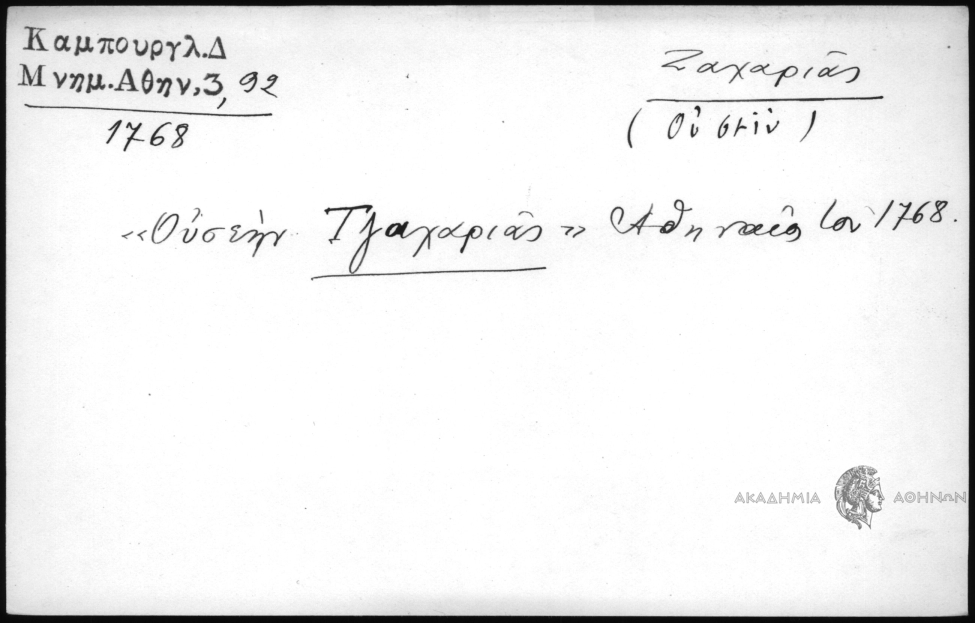 Καμπουργλ.Δ
Μνημ.Αθην,3, 92
1768
Ζαχαριᾶς
(Οὐσεὶν)
«Οὐσεὴν Τζαχαριᾶς» Ἀθηναῖος τοῦ 1768.
ΑΚΑΔΗΜΙΑ ΑΘΗΝΩΝ